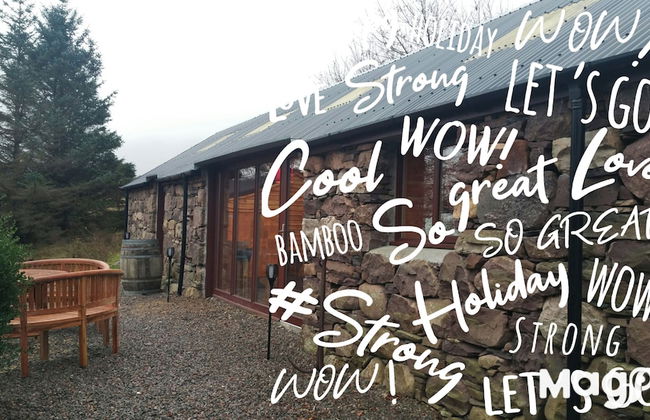 HOLIDAY WOW!
LOVE Strong LET'S GO
Cool WOW! great Love
BAMBOO So SO GREAT
#Strong Holiday WOW
STRONG
WOW! LET'S GO
Mage